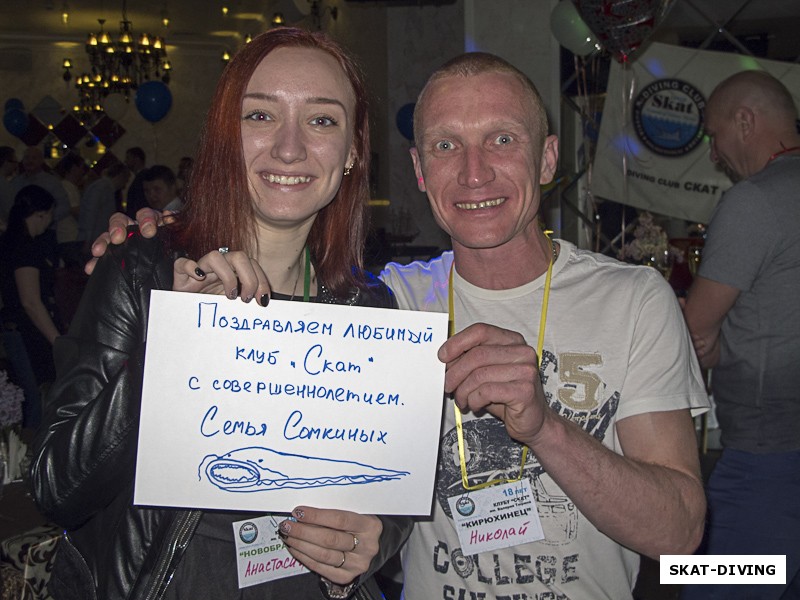 Поздравляем любимый
клуб „Скат"
с совершеннолетием.
Семья Сомкиных
DIVING CLUB
Skat
DIVING CLUB СКАТ
18 лет
КЛУБУ "СКАТ"
"КИРЮХИНЕЦ"
Николай
Skat
"НОВОБРА
Анастаси
5
COLLEGE
SKAT-DIVING